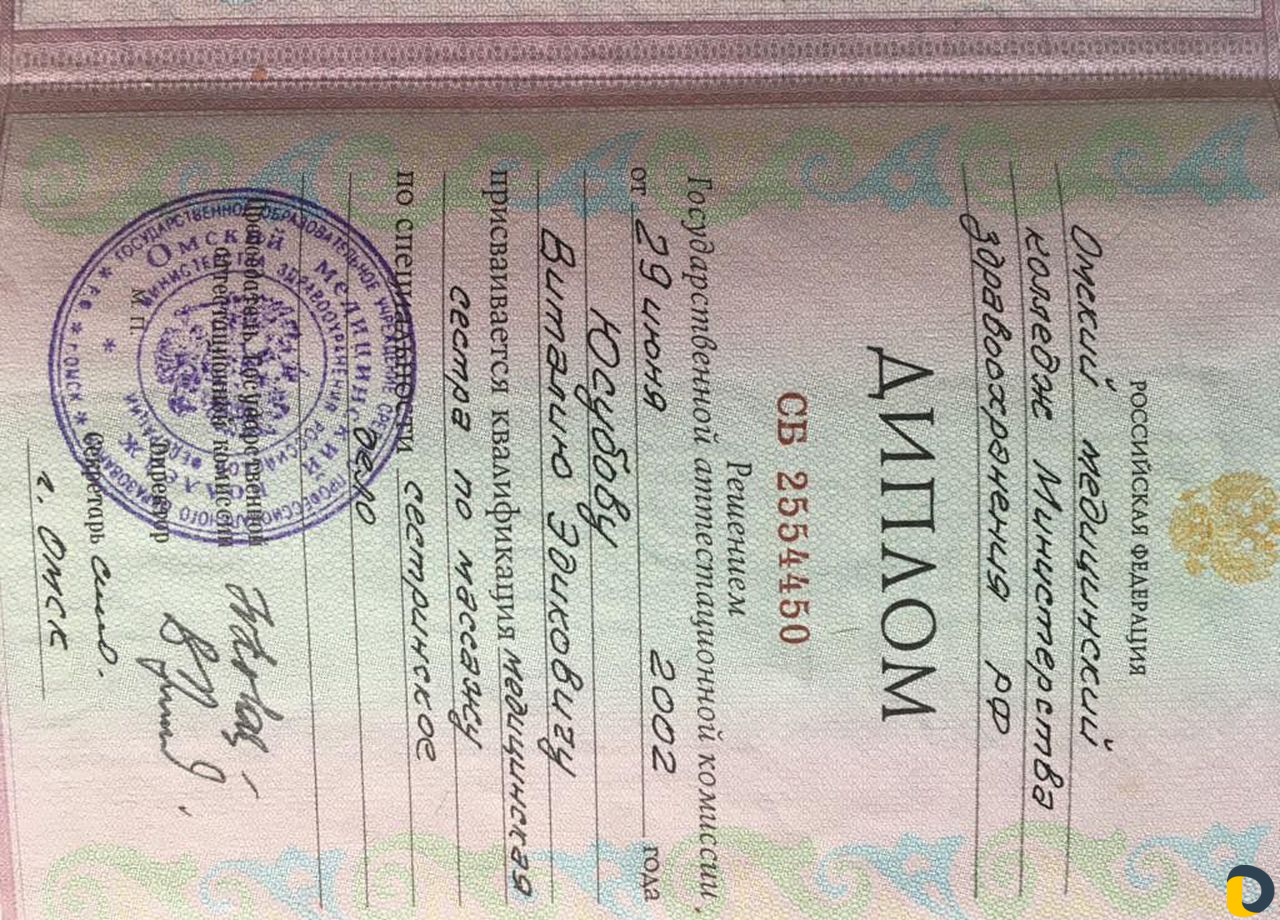 РОССИЙСКАЯ ФЕДЕРАЦИЯ
Омский медицинский
колледж Министерства
здравоохранения РФ
ДИПЛОМ
СБ 2554450
Решением
Государственной аттестационной комиссии,
от 29 июня 2002 года
Юсубову
Виталию Эдиковичу
присваивается квалификация медицинская
сестра по массажу
по специальности сестринское
дело
Председатель Государственной
аттестационной комиссии
Директор
М.П.
Секретарь
г. Омск
ГОСУДАРСТВЕННОЕ ОБРАЗОВАТЕЛЬНОЕ УЧРЕЖДЕНИЕ СРЕДНЕГО ПРОФЕССИОНАЛЬНОГО ОБРАЗОВАНИЯ
* г. ОМСК *
ОМСКИЙ МЕДИЦИНСКИЙ КОЛЛЕДЖ
МИНИСТЕРСТВА ЗДРАВООХРАНЕНИЯ РОССИЙСКОЙ ФЕДЕРАЦИИ